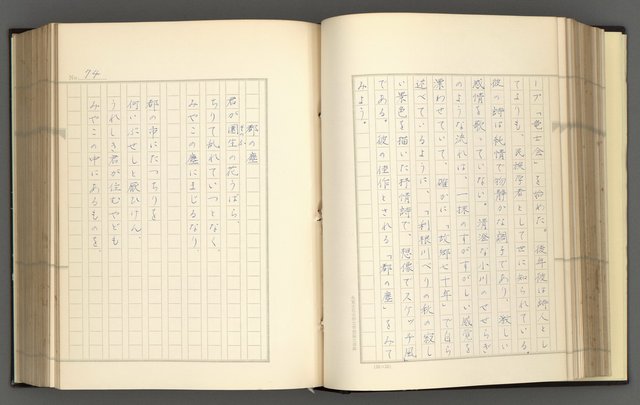 ープ「竜土会」を始めた。後年彼は詩人とし
てよりも、民族学者として世に知られている。
彼の詩は純情で物静かな調子であり、激しい
感情を歌っていない。清澄な小川のせせらぎ
のような流れは、一抹のすがすがしい感覚を
漂わせていて、確かに「故郷七十年」で自ら
述べているように、「利根川べりの秋の寂し
い景色を描いた抒情詩で、想像でスケッチ風」
である。彼の佳作とされる「都の塵」をみて
みよう。
No. 74
都の塵
君が園生の花うばら、
そのふ
ちりて乱れていつとなく、
みやこの塵にまじるなり、
都の市にたつちりを
何いぶせしと厭ひけん、
うれしき君が住むやども
みやこの中にあるものを、